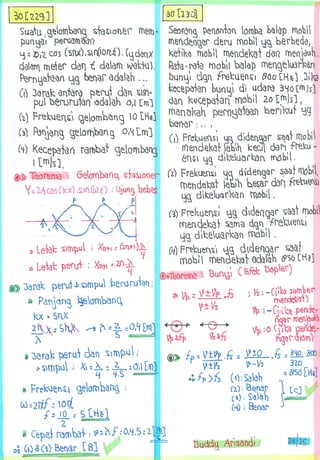 30 [223]
Suatu gelombang stasioner mem-
punyai persamaan
y = 0,2 cos (5πx).sin(10πt). (y dan x
dalam meter dan t dalam waktu).
Pernyataan yg benar adalah ...
(1) Jarak antara perut dan sim-
pul berurutan adalah 0,1 [m]
(2) Frekuensi gelombang 10 [Hz]
(3) Panjang gelombang 0,4 [m]
(4) Kecepatan rambat gelombang
1 [m/s].
Teorema Gelombang stasioner
Y = 2A cos(kx).sin(ωt) : Ujung bebas
P P P
S S S
Letak simpul : Xn+1 = (2n+1) λ/4
Letak perut : Xn+1 = 2n λ/4
Jarak perut & simpul berurutan:
Panjang gelombang
kx = 5πx
2π/λ x = 5πx → λ = 2/5 = 0,4 [m]
Jarak perut dan simpul :
simpul : X1 = λ/4 = 2/4.5 = 0,1 [m]
Frekuensi gelombang :
ω = 2πf = 10π
f = 10/2 = 5 [Hz]
Cepat rambat, v = λ.f = 0,4.5 = 2 [m/s]
(1) & (3) Benar [B]
30 [230]
Seorang penonton lomba balap mobil
mendengar deru mobil yg berbeda,
ketika mobil mendekat dan menjauh.
Rata-rata mobil balap mengeluarkan
bunyi dgn frekuensi 800 [Hz]. Jika
kecepatan bunyi di udara 340 [m/s]
dan kecepatan mobil 20 [m/s],
manakah pernyataan berikut yg
benar : ...
(1) Frekuensi yg didengar saat mobil
mendekat lebih kecil dari freku-
ensi yg dikeluarkan mobil.
(2) Frekuensi yg didengar saat mobil
mendekat lebih besar dari frekuensi
yg dikeluarkan mobil.
(3) Frekuensi yg didengar saat mobil
mendekat sama dgn frekuensi
yg dikeluarkan mobil.
(4) Frekuensi yg didengar saat
mobil mendekat adalah 850 [Hz]
Teorema Bunyi (Efek Doppler)
fp = V±Vp/V±Vs .fs ; Vs : - (jika sumber
mendekat)
Vp : - (jika pende-
ngar menjauh)
Vp : 0 (jika pende-
ngar diam)
fp = V±Vp/V±Vs .fs = V±0/V-Vs .fs = 340/320 .800
= 850 [Hz]
fp > fs (1) : Salah
(2) : Benar
(3) : Salah
(4) : Benar
[C]
Duddy Arisandi